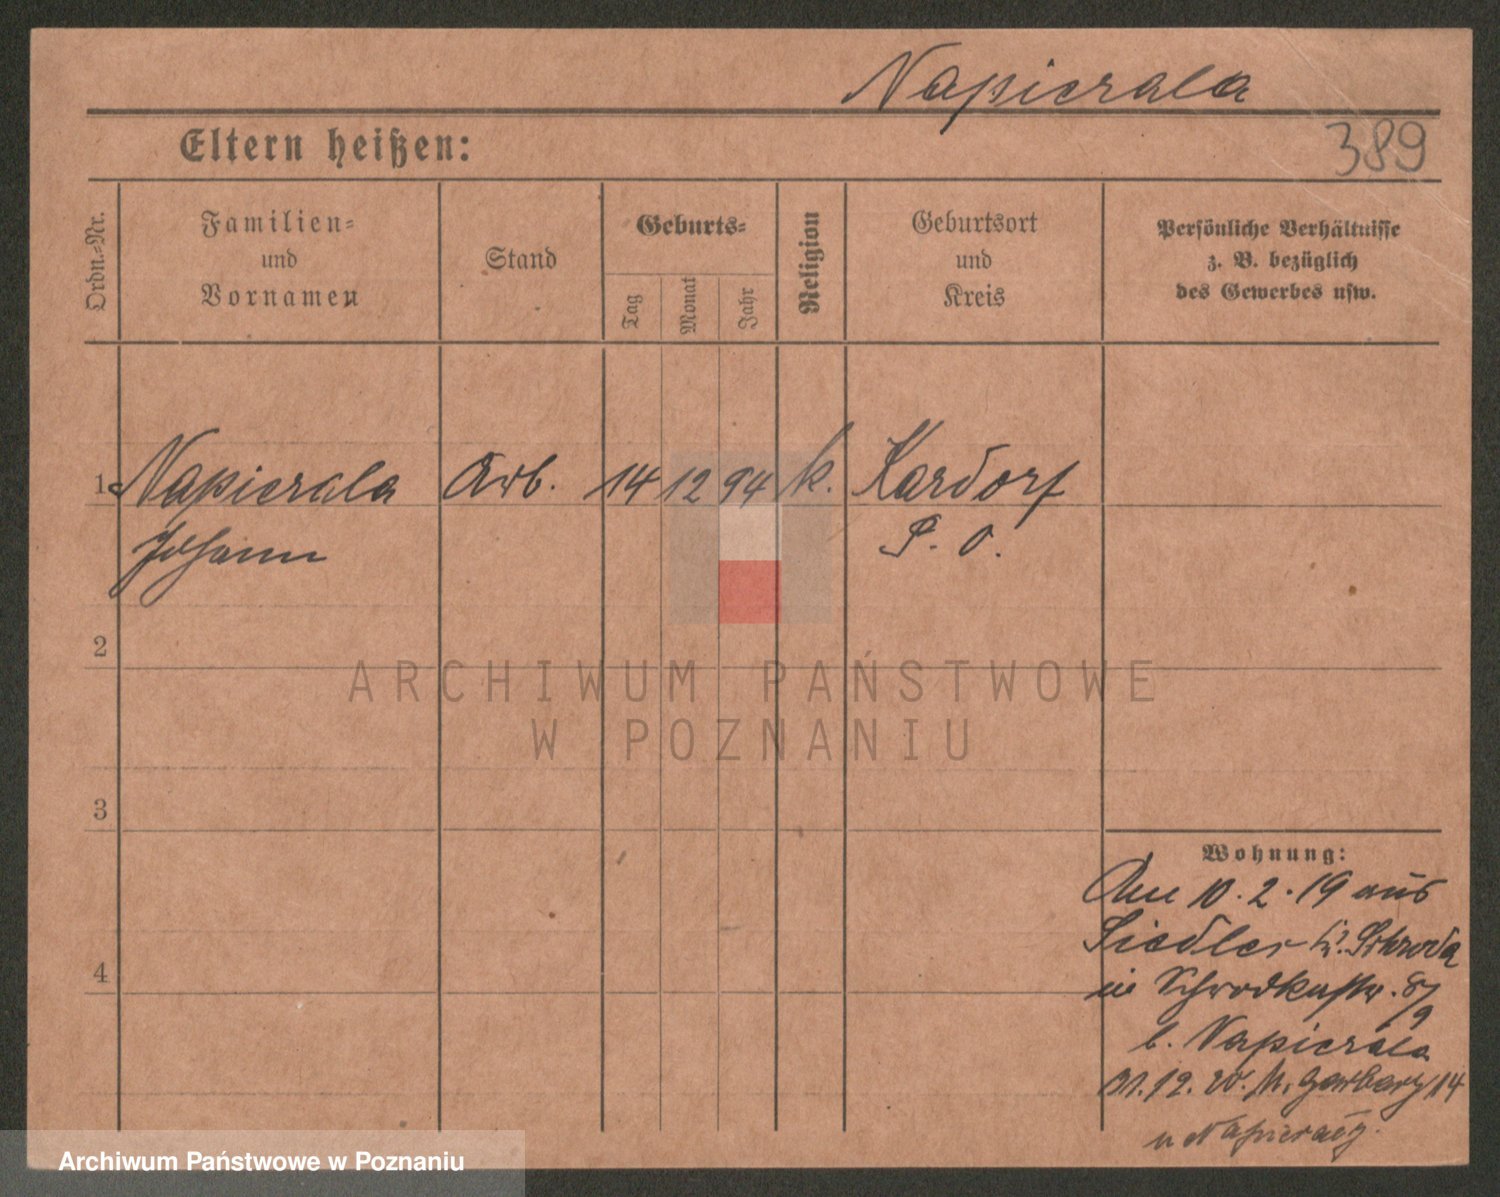 Napierala
389
Eltern heißen:
Ordn.-Nr.
Familien-
und
Vornamen
Stand
Geburts-
Tag
Monat
Jahr
Religion
Geburtsort
und
Kreis
Persönliche Verhältnisse
z. B. bezüglich
des Gewerbes usw.
1 Napierala Arb. 14 12 94 k. Kardorf
Johann P. O.
2
ARCHIWUM PAŃSTWOWE
W POZNANIU
3
4
Wohnung:
Am 10.2.19 aus
Siedlec Kr. Schroda
in Schrodkastr. 8/9
b. Napierala
31.12.20. Garbary 14
u
Archiwum Państwowe w Poznaniu